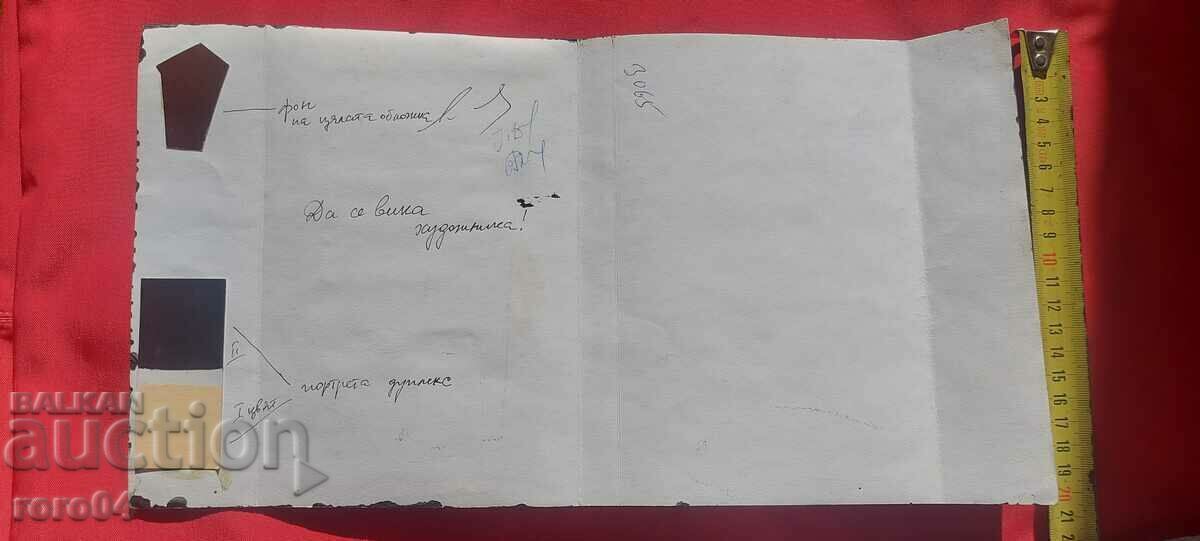 фон
на цялата обложка
Да се вика
художника!
3065
II
I цвят
портрета дуплекс
BALKAN
auction
roro04
3
4
5
6
7
8
9
10
11
12
13
14
15
16
17
18
19
20
21